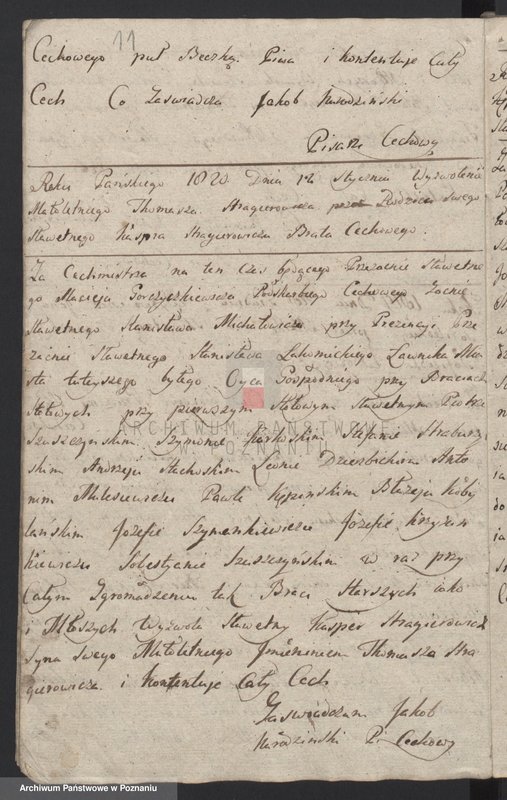 11
Cechowego puł Beczką Piwa i kontentuje Cały
Cech Co Zaswiadcza Jakob
Pisarz Cechowy
Roku Panskiego 1820 Dnia 12 stycznia Wyzwolenie
Małoletniego Thomasza Stragierowicza przez Rodzica swego
Sławetnego Kaspra Stragierowicza Brata Cechowego.
Za Cechmistrza na ten czas będącego Przezacnie Sławetne
go Macieja Porczyczkiewicza Podskarbiego Cechowego Zacnie
Sławetnego Stanisława Michałowicza przy Prezencyi Prze
zacnie Sławetnego Stanisława Lawnika Mia
sta tutayszego byłego Oyca Gospodniego przy Braciach
Stołowych przy pierwszym Stołowym Sławetnym Piotrze
Szuszczynskim Szymonie Stefanie
skim Andrzeju Leonie Anto
nim Pawle Kępinskim Błażeju Koby
lańskim Józefie Szymenkiewiczu Józefie Krzyżan
kiewiczu Sobestyanie Szuszczyńskim w raz przy
Całym Zgromadzeniu tak Braci Starszych iako
i Młoszych Wyzwola Sławetny Kasper Stragierowicz
Syna Swego Małoletniego Imieniem Thomasza Stra
gierowicza i kontentuje Cały Cech
Zaswiadczam Jakob
P. Cechowy
ARCHIWUM PAŃSTWOWE
W POZNANIU
Archiwum Państwowe w Poznaniu